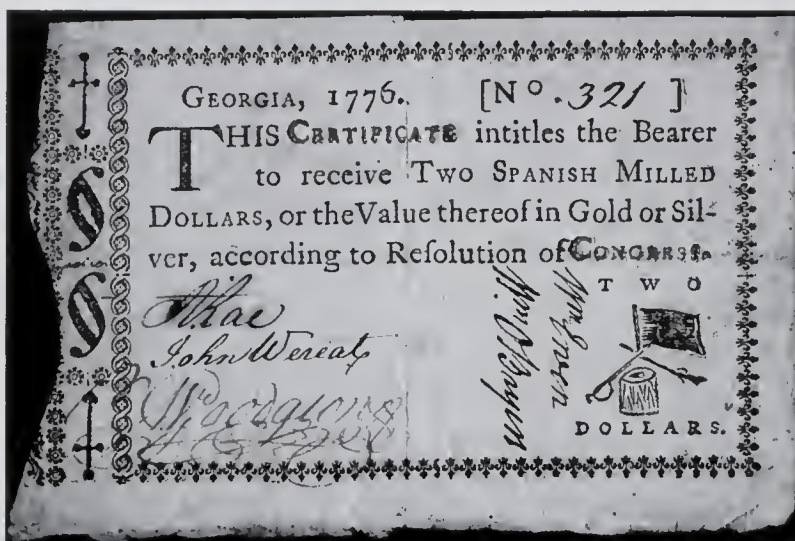 GEORGIA, 1776. [No. 321 ]
THIS CERTIFICATE intitles the Bearer
to receive TWO SPANISH MILLED
DOLLARS, or the Value thereof in Gold or Sil-
ver, according to Reſolution of CONGRESS.
TWO
John Wereat
DOLLARS.